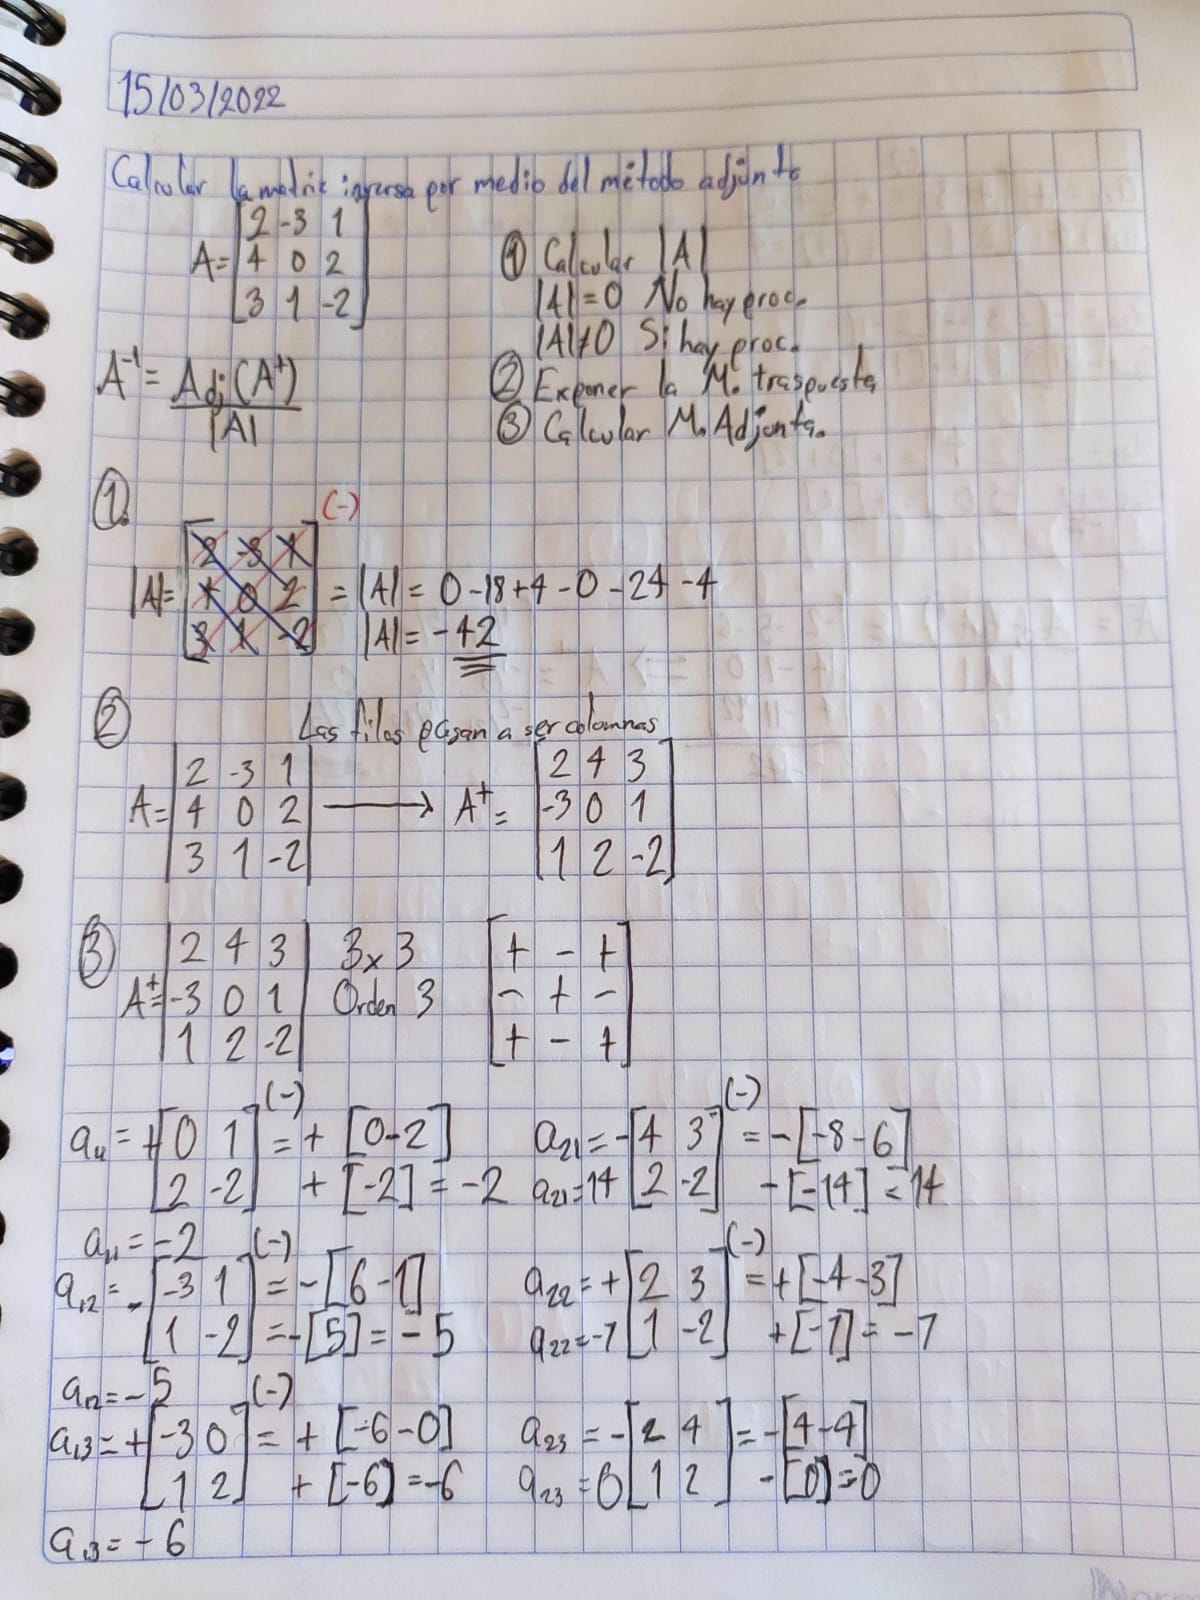 15/03/2022
Calcular la matriz inversa por medio del método adjunto
A= [2 -3 1
4 0 2
3 1 -2]
① Calcular |A|
|A|=0 No hay proc.
|A|≠0 Si hay proc.
② Exponer la M. traspuesta
③ Calcular M. Adjunta.
A⁻¹ = Adj(A⁺)
|A|
①.
|A|= [2 -3 1 (-)
4 0 2
3 1 -2] = |A| = 0 -18 +4 -0 -24 -4
|A| = -42
② Las filas pasan a ser columnas
A= |2 -3 1
4 0 2
3 1 -2| → A⁺= [2 4 3
-3 0 1
1 2 -2]
③ A⁺= |2 4 3
-3 0 1
1 2 -2|
3x3
Orden 3
[+ - +
- + -
+ - +]
a₁₁ = +[0 1 (-) = + [0-2]
2 -2] + [-2] = -2
a₁₁ = -2
a₁₂ = -[-3 1 (-) = -[6 -1]
1 -2] = -[5] = -5
a₁₂ = -5
a₁₃ = +[-3 0 (-) = + [-6 -0]
1 2] + [-6] = -6
a₁₃ = -6
a₂₁ = -[4 3 (-) = -[-8 -6]
a₂₁ = 14 2 -2] -[-14] = 14
a₂₂ = +[2 3 (-) = +[-4 -3]
a₂₂ = -7 1 -2] +[-7] = -7
a₂₃ = -[2 4 = -[4 -4]
a₂₃ = 0 1 2] -[0] = 0